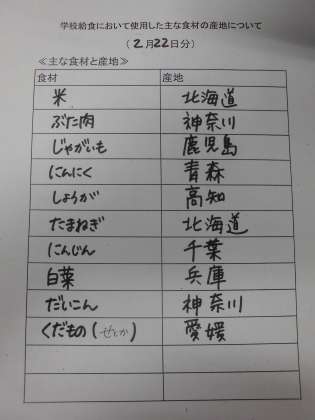 学校給食において使用した主な食材の産地について
(2月22日分)
≪主な食材と産地≫
食材 産地
米 北海道
ぶた肉 神奈川
じゃがいも 鹿児島
にんにく 青森
しょうが 高知
たまねぎ 北海道
にんじん 千葉
白菜 兵庫
だいこん 神奈川
くだもの(せとか) 愛媛